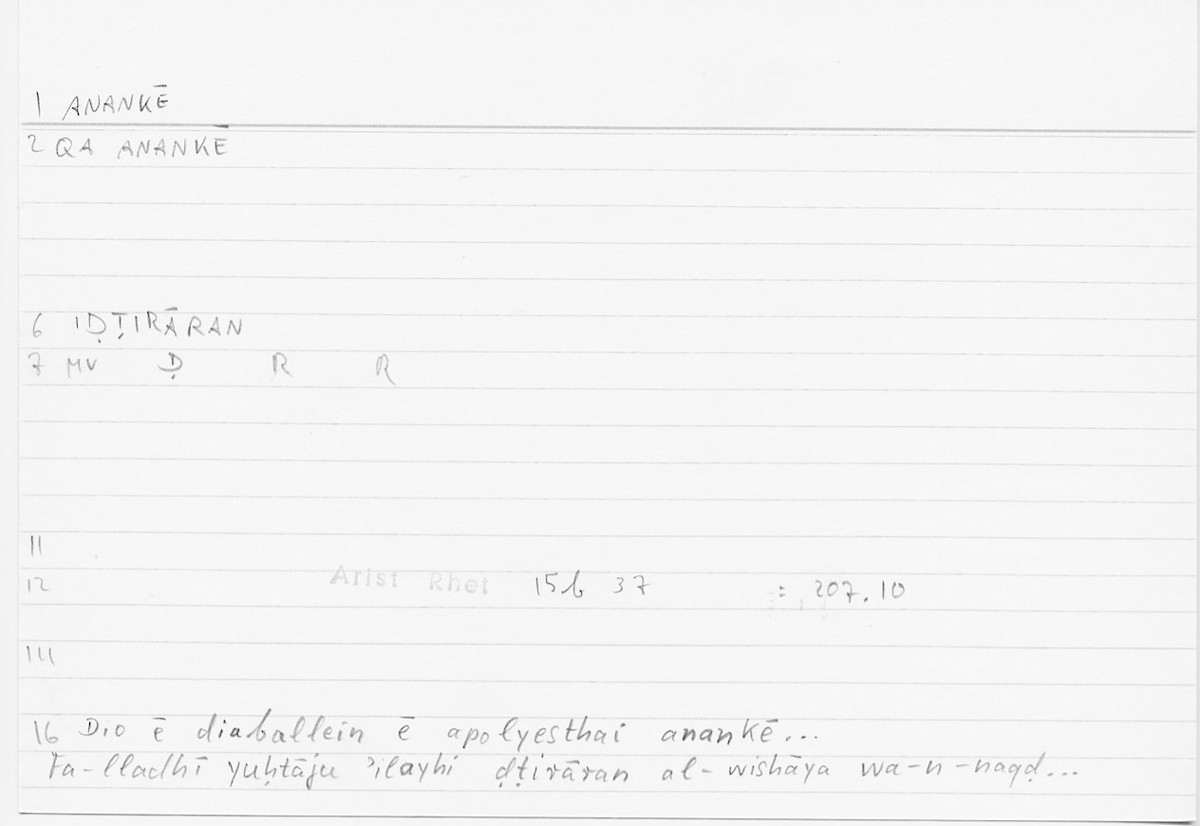 1 ANANKĒ
2 QA ANANKĒ
6 IḌṬIRĀRAN
7 MV Ḍ R R
11
12 Arist Rhet 15b 37 = 207.10
14
16 Dio ē diaballein ē apolyesthai anankē...
Fa-lladhī yuḥtāju ʾilayhi ḍṭirāran al-wishāya wa-n-naqḍ...